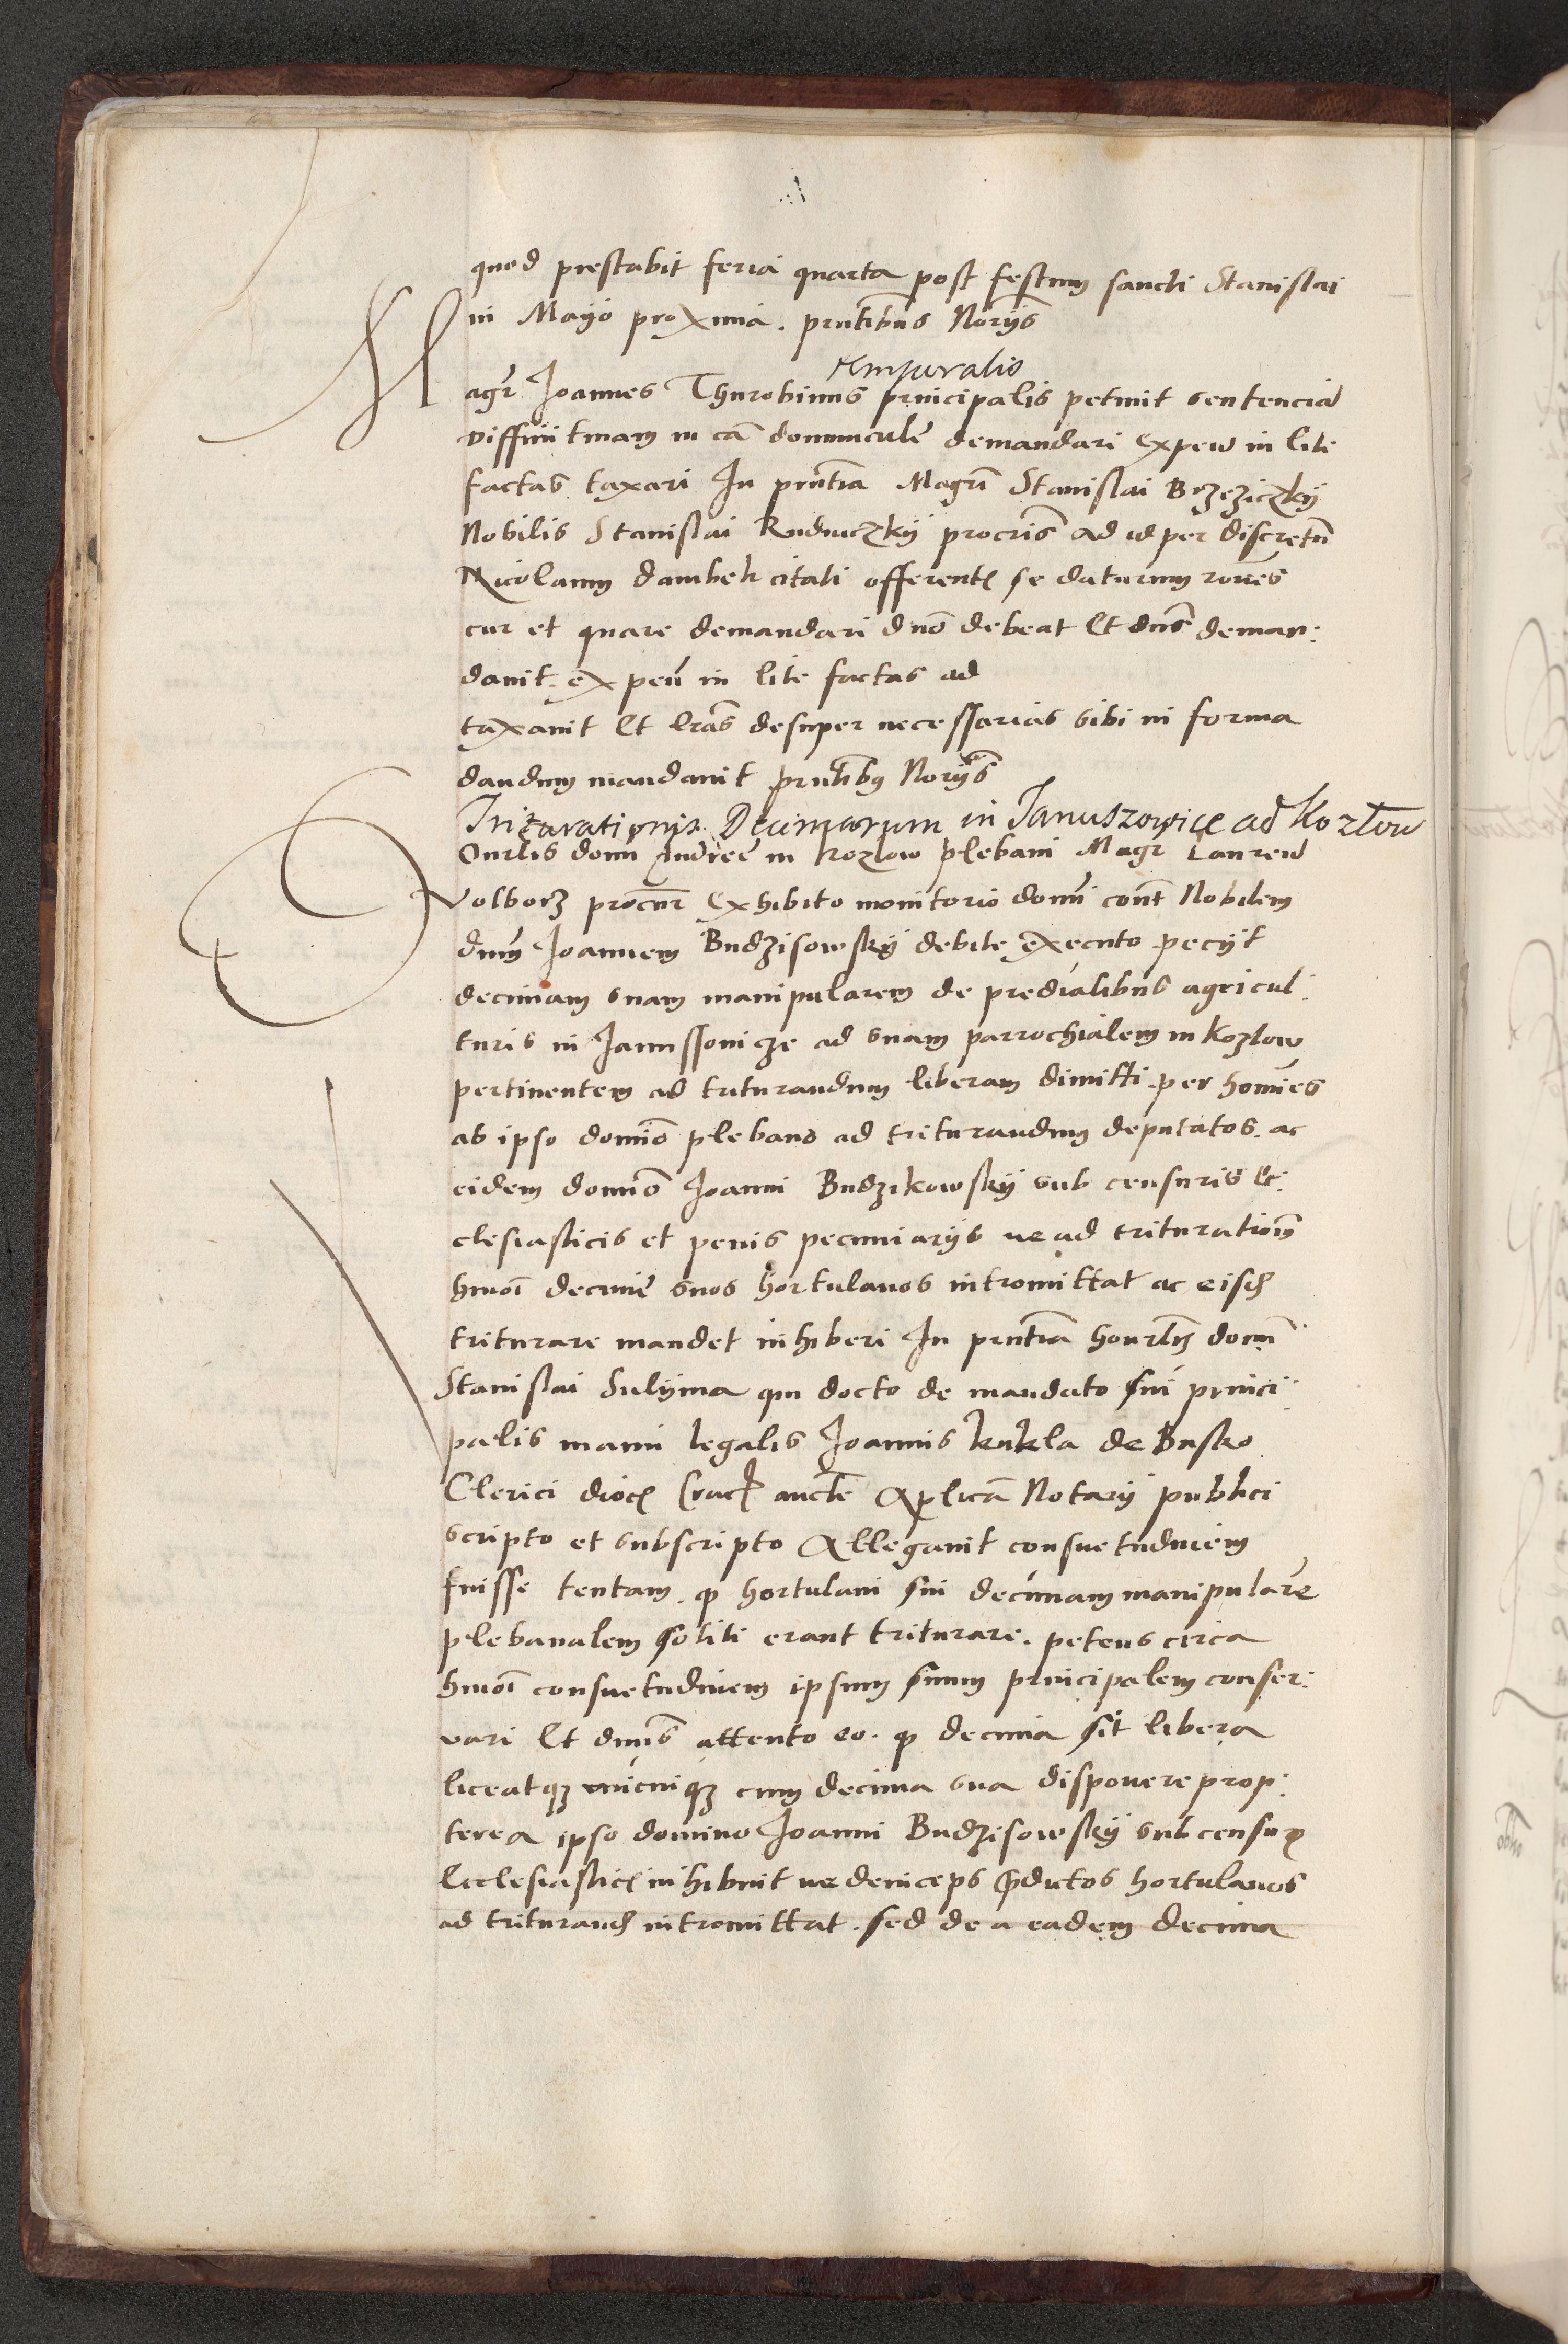 quod prestabit feria quarta post festum sancti Stanislai
in Mayo proxima. pntibus Norijs
Magr Joannes Thurobinus principalis petiuit sentencia
diffinitiuam in ca domuncule demandari expen in lite
factas taxari In pntia Magri Stanislai Brzeziczky
Nobilis Stanislai Rudniczky procris ad id per discretu
Nicolaum dambek citati offerent se daturum rones
cur et quare demandari no debeat Et dns deman:
dauit. expen in lite factas ad
taxauit Et lras desuper necessarias sibi in forma
dandum mandauit pntibus Norijs
Triturationis Decimarum in Januszowice ad Kozlow
Honrlis domi Andree in Kozlow plebani Magr Lauren
Volborz procur exhibito monitorio domi cont Nobilem
dnm Joannem Budzisowsky debite executo peciit
decimam suam manipularem de predialibus agricul:
turis in Janussouicze ad suam parrochialem in Kozlow
pertinentem ad triturandum liberam dimitti per homies
ab ipso domio plebano ad triturandum deputatos. ac
eidem domio Joanni Budzikowsky sub censuris Ec:
clesiasticis et penis pecuniarijs ne ad trituration
hmoi decime suos hortulanos intromittat ac eisd
triturare mandet inhiberi In pntia honrlis domi
Stanislai Sulyma qui docto de mandato sui princi:
palis manu legalis Joannis Kukla de Busko
Clerici dioc Crac aucte Aplica Notarij publici
scripto et subscripto Allegauit consuetudinem
fuisse tentam. q hortulani sui decimam manipulare
plebanalem soliti erant triturare. petens circa
hmoi consuetudinem ipsum suum principalem conser:
vari Et dnus attento eo. q decima sit libera
liceatqz vnicuiqz cum decima sua disponere prop:
terea ipso domino Joanni Budzisowsky sub censur
Ecclesiastic inhibuit ne deinceps pdictos hortulanos
ad triturand intromittat. sed de a eadem decima